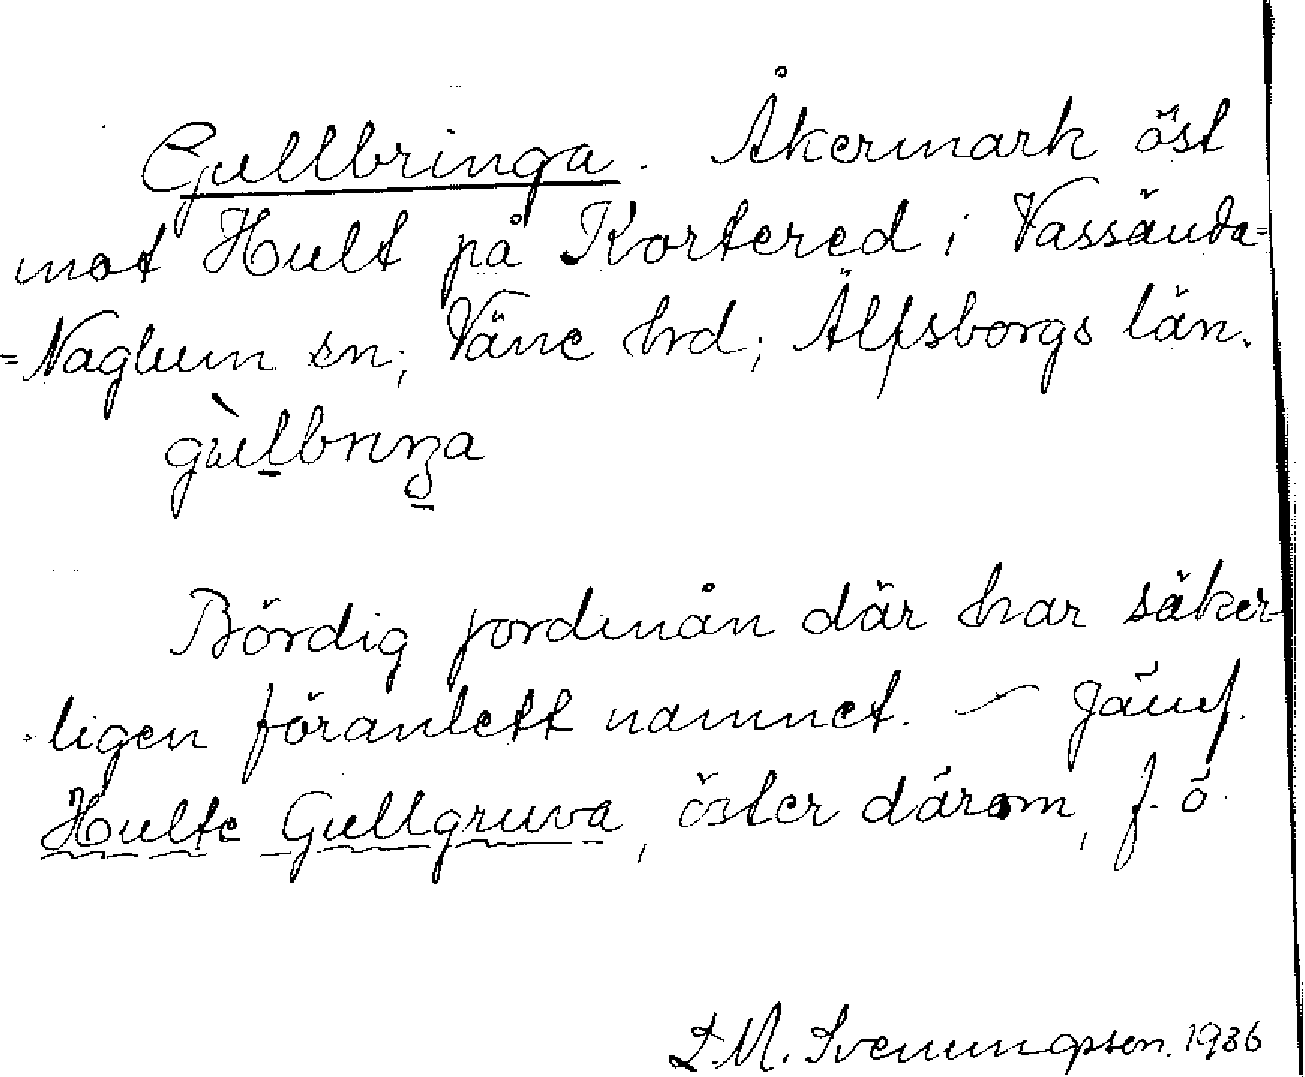 Gullbringa. Åkermark öst
mot Hult på Kortered i Vassända-
-Naglum sn, Väne hrd, Älfsborgs län.
gùlbriŋa
Bördig jordmån där har säker-
ligen föranlett namnet. - Jämf.
Hulte Gullgruva, öster därom, f. ö.
L. M. Svenungsson. 1936